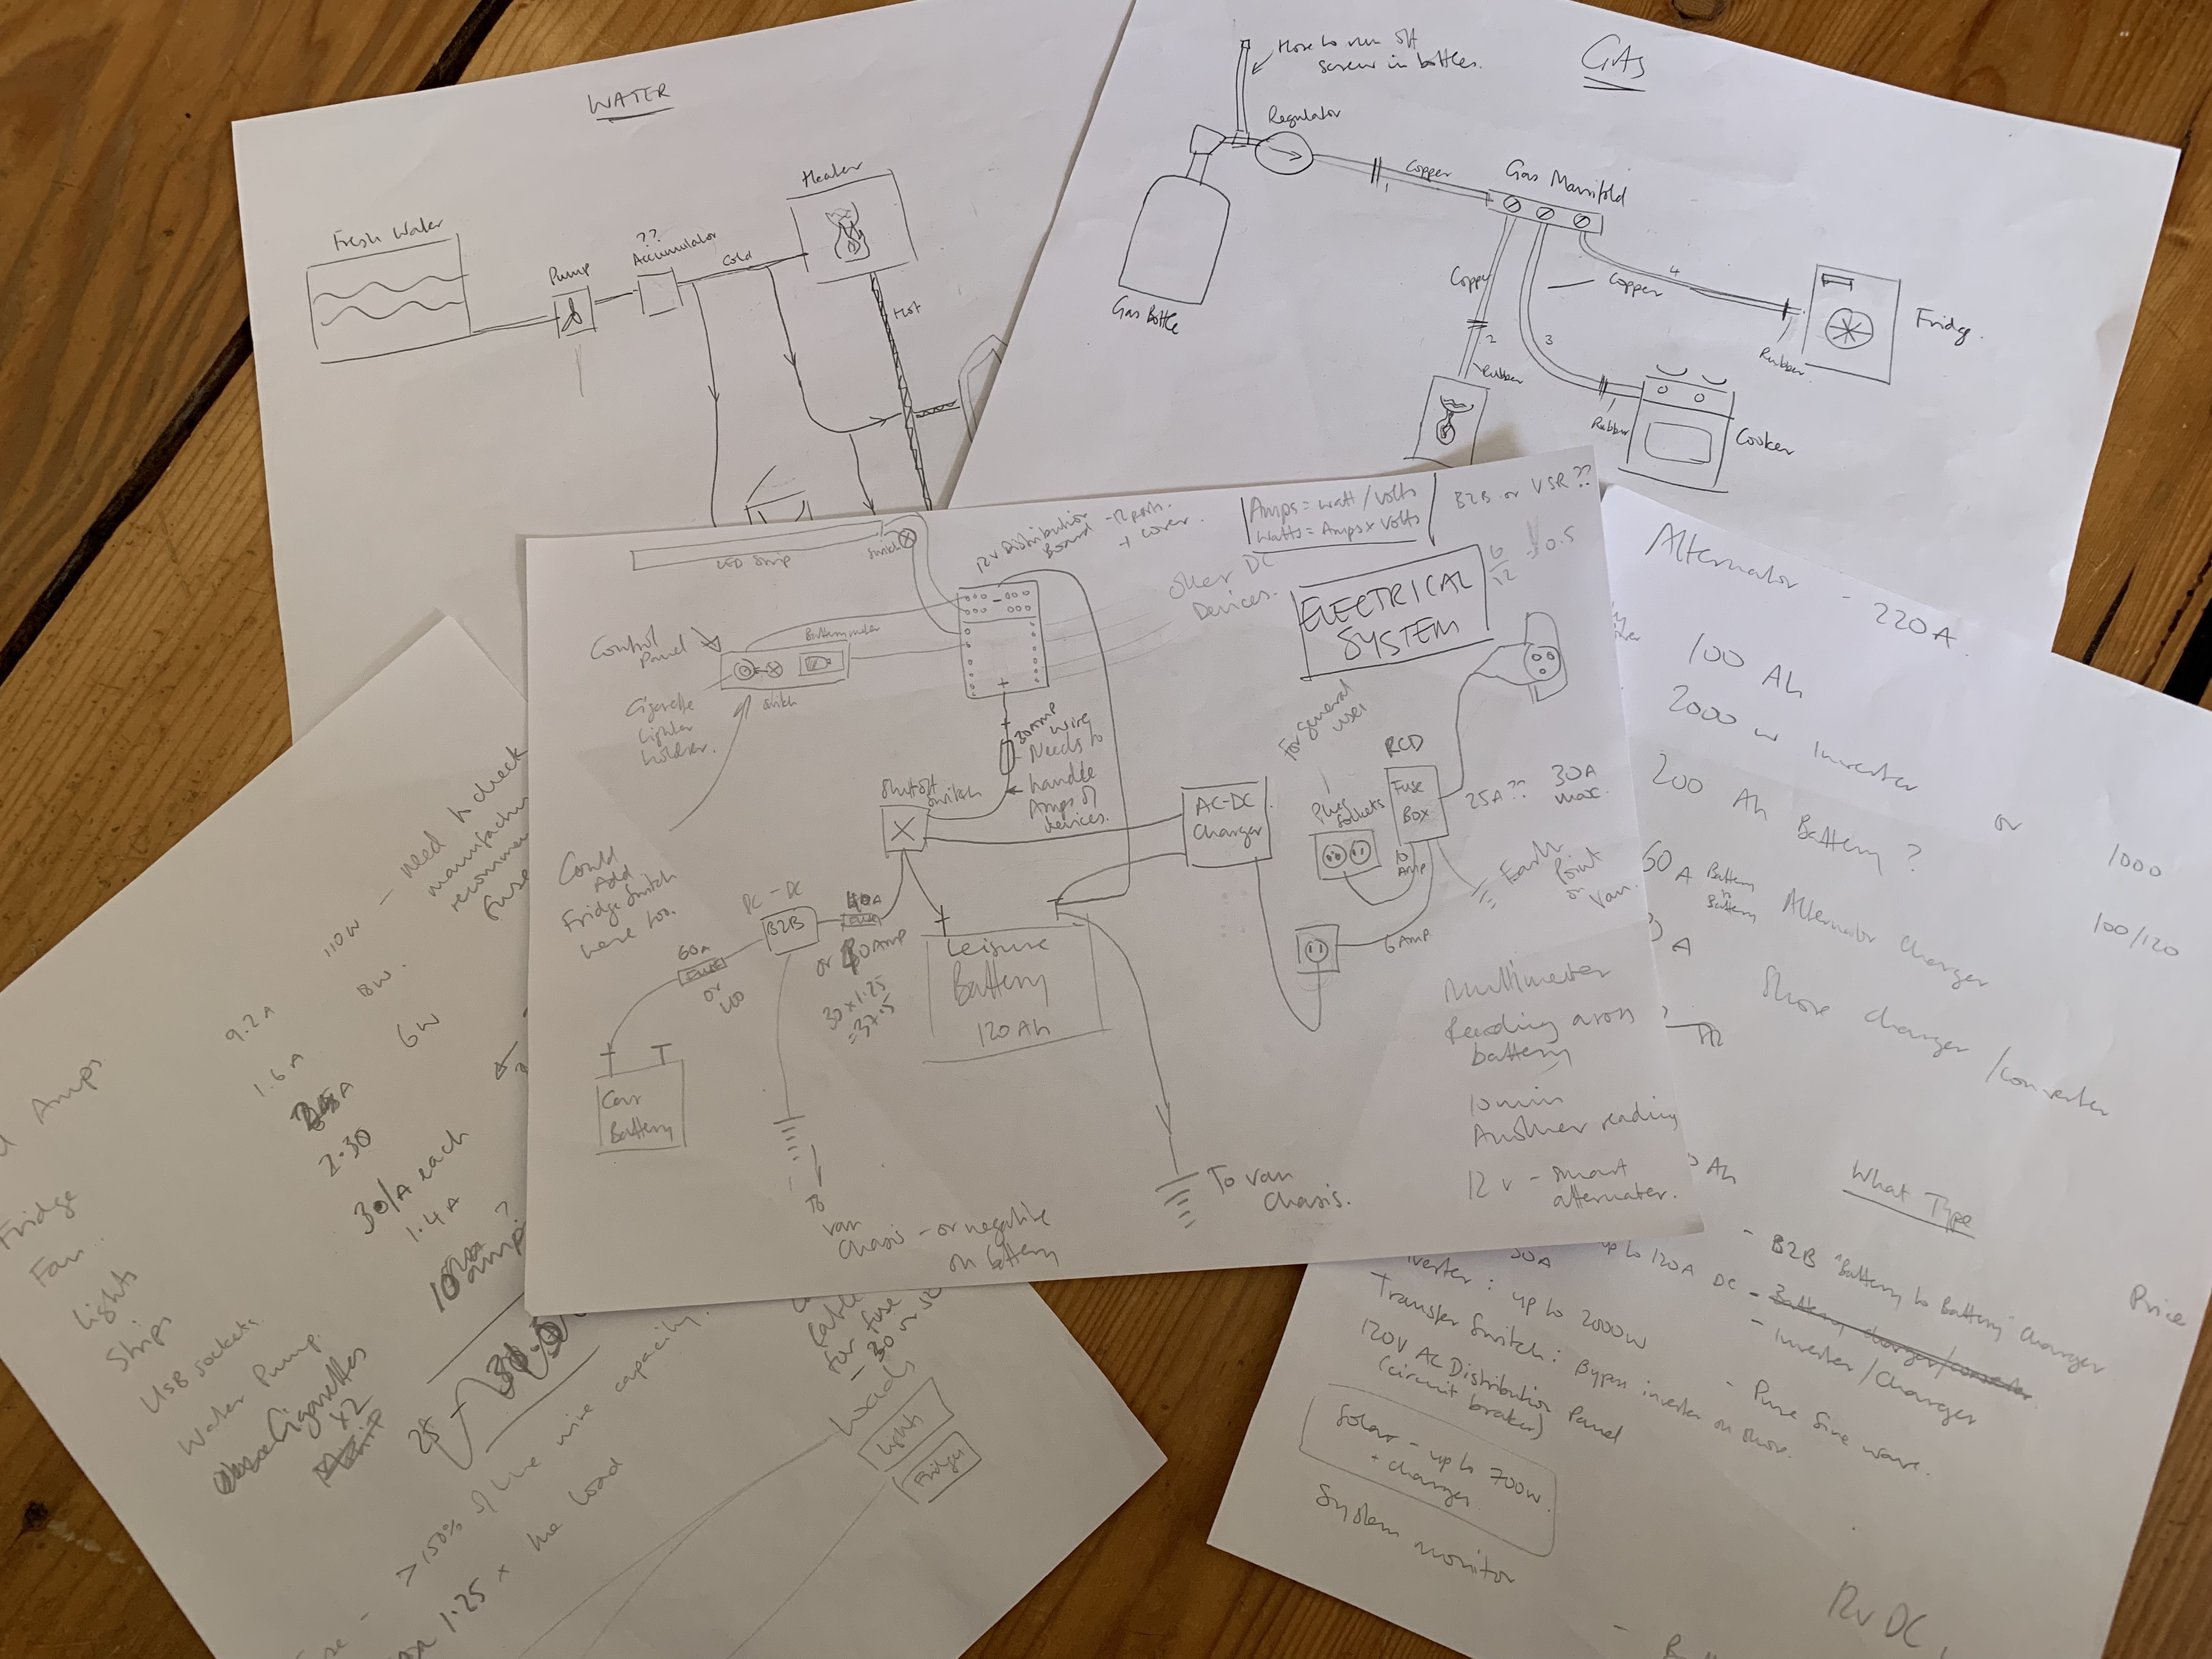 WATER
Fresh Water
Pump
??
Accumulator
Cold
Heater
Hot
GAS
Hose to run off
screw in bottles.
Regulator
Copper
1
Gas Manifold
Gas Bottle
Copper
2
Rubber
3
Copper
4
Rubber
Fridge
Rubber
Cooker
LED Strip
Switch
12v Distribution
Board
+ cover
Other DC
Devices.
Amps = watt / volts
Watts = Amps x volts
B2B or VSR ??
6/12
0.5
ELECTRICAL
SYSTEM
Control
Panel
Battery meter
Cigarette
Lighter
holder.
Switch
Could
Add
Fridge Switch
here too.
30 Amp
wire
Needs to
handle
Amps of
devices.
Shutoff
Switch
AC-DC
Charger
For general
use
Plug
Sockets
RCD
Fuse
Box
25A ??
30A
max.
10
Amp
6 Amp
Earth
Point
on
Van.
DC - DC
B2B
60A
Fuse
or
100
40A
Fuse
or
30 x 1.25
= 37.5
Leisure
Battery
120 Ah
Car
Battery
To
van
Chasis - or negative
on battery
To van
Chasis.
Multimeter
Reading across
battery
10 min
Another reading
12 v - smart
alternater.
Alternator - 220A
100 Ah
2000 w Inverter or 1000
200 Ah Battery ? 100/120
60 A Battery to Battery Alternator Charger
A Shore charger / converter
Ah
What Type
Price
- B2B "Battery to Battery" Charger
- Inverter / Charger
- Pure Sine wave.
30A
up to 120A DC
verter : up to 2000w
Transfer Switch : Bypass inverter on shore.
120V AC Distribution Panel
(circuit braker)
Solar - up to 700w.
+ charger
System monitor
12v DC
110w - need to check
9.2 A
1.6 A
6w
2.30
each
1.4 A
Amps
Fridge
Fan
Lights
Strips
USB sockets
Water Pump.
Cigarettes
x2
25
> 150% of the wire capacity.
1.25 x the load
for fuse
Loads
Lights
Fridge